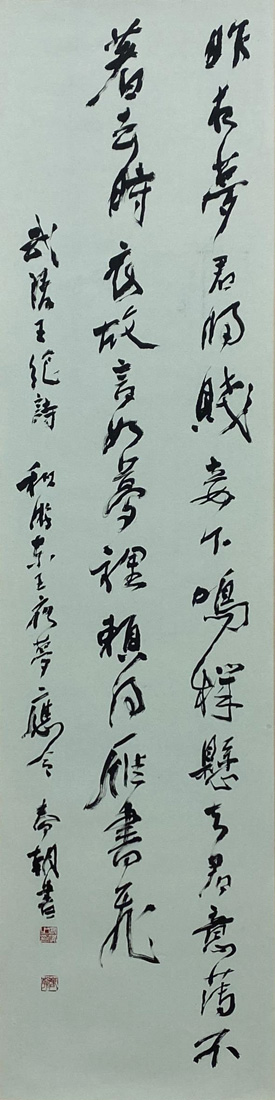 昨夜夢君歸賤妾下鳴機懸知君意薄不
著去時衣故言如夢裡賴得雁書飛
武陵王紀詩 和湘東王夜夢應令 春朝書